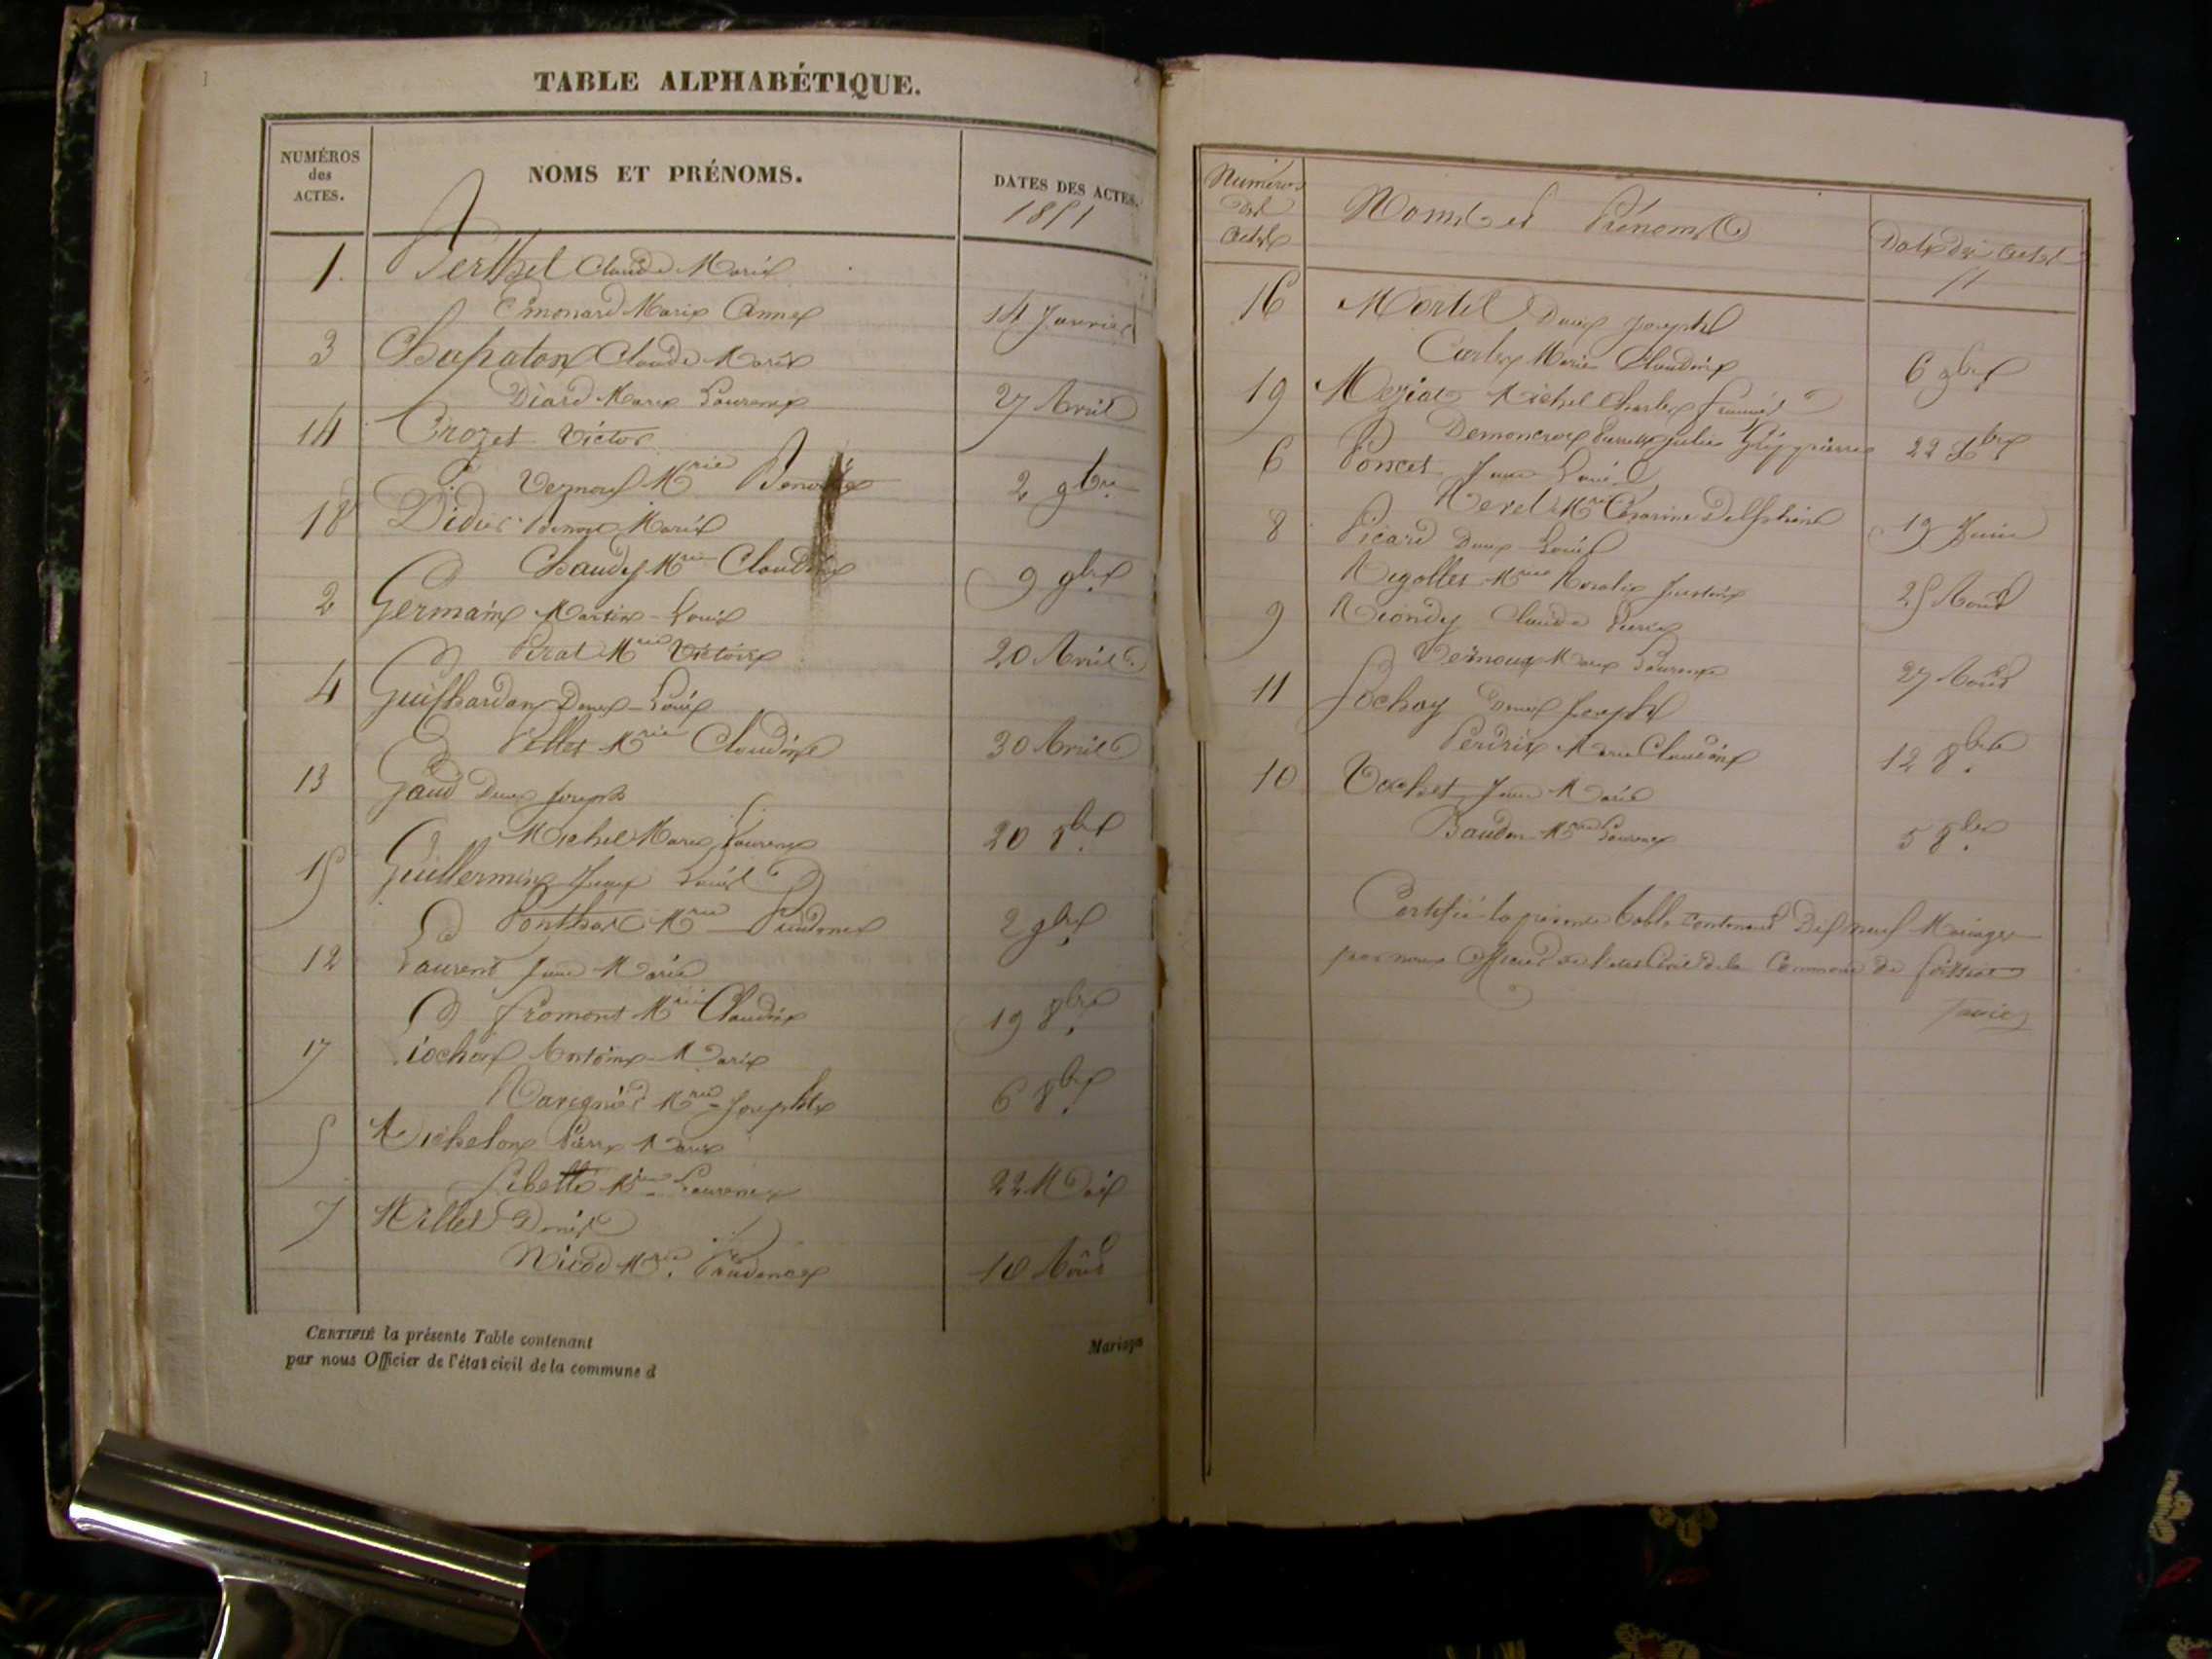 TABLE ALPHABÉTIQUE.
NUMÉROS
des
ACTES.
NOMS ET PRÉNOMS.
DATES DES ACTES.
1851
1. Claude Marie
Emonard Marie Anne 14 Janvier
3 Chapaton Claude Marie
Diard Marie Laurence 27 Avril
14 Crozet Victor
Vernoux Mrie Benoite 2 9bre
18 Didier Marie
Chaudy Mrie Claudine 9 9bre
2 Germain Martin Louis
Perat Mrie Victoire 20 Avril
4 Guichardan Denis Louis
Pellet Mrie Claudine 30 Avril
13 Gaud Denis Joseph
Michel Marie Laurence 20 8bre
15 Guillermin Jean Louis
Ponthus Mrie Prudence 2 9bre
12 Laurent Jean Marie
Fromont Mrie Claudine 19 8bre
17 Liochon Antoine Marie
Mrie Josephte 6
5 Michelon Pierre Marie
Mrie Laurence 22 Mai
7 Millet Denis
Nicod Mrie Prudence 10 Août
CERTIFIÉ la présente Table contenant Mariages
par nous Officier de l'état civil de la commune d
Numéros
des
actes
Noms et Prénoms
Date des actes
51
16 Mortel Denis Joseph
Marie Claudine 6 9bre
19 Meziat Michel Charles
Julie 22 Xbre
6 Poncet Jean Louis
Mrie Césarine Delphine 19 Juin
8 Picard Denis Louis
Rigollet Mrie Rosalie Justine 25 Août
9 Riondy Claude Pierre
Vernoux Marie Laurence 27 Août
11 Sochay Denis Joseph
Perdrix Marie Claudine 12 8bre
10 Vochet Jean Marie
Baudon Mrie Laurence 5 8bre
Certifié la présente table contenant Dix neuf Mariages
par nous Officier de l'état Civil de la Commune de